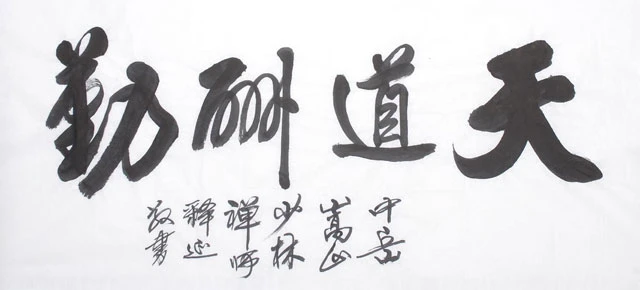 天道酬勤
中岳
嵩山
少林
禅师
释
書